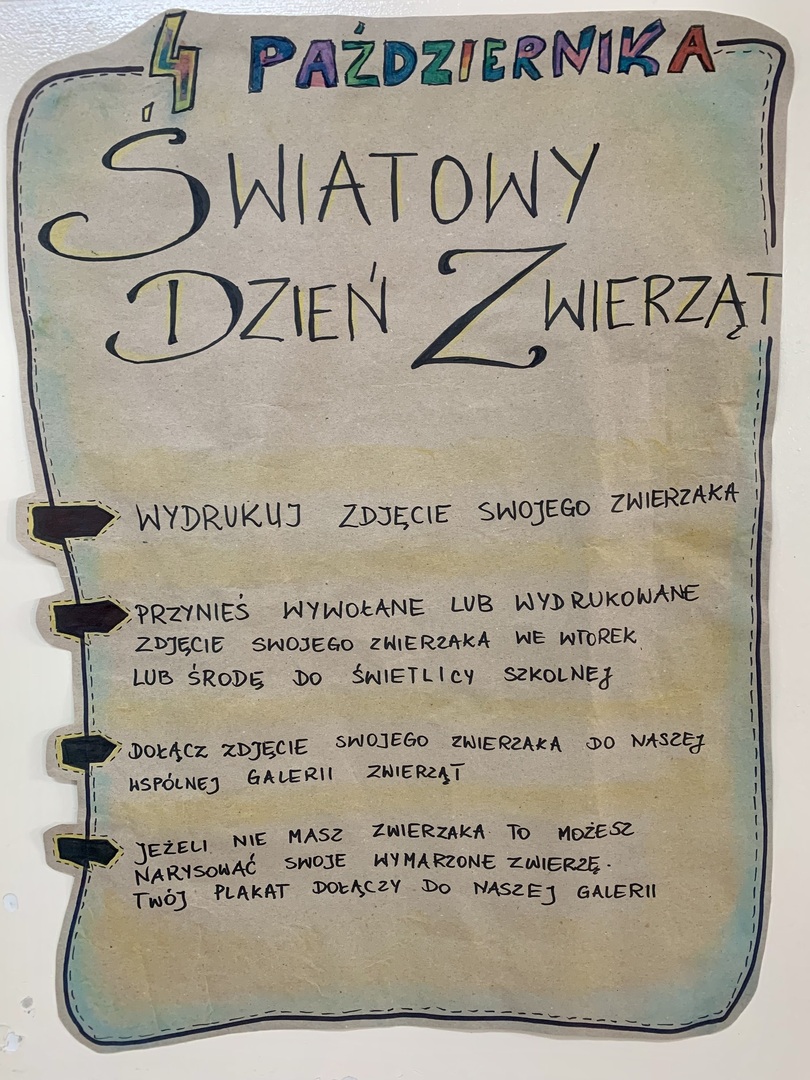 4 PAŹDZIERNIKA
ŚWIATOWY
DZIEŃ ZWIERZĄT
WYDRUKUJ ZDJĘCIE SWOJEGO ZWIERZAKA
PRZYNIEŚ WYWOŁANE LUB WYDRUKOWANE
ZDJĘCIE SWOJEGO ZWIERZAKA WE WTOREK
LUB ŚRODĘ DO ŚWIETLICY SZKOLNEJ
DOŁĄCZ ZDJĘCIE SWOJEGO ZWIERZAKA DO NASZEJ
WSPÓLNEJ GALERII ZWIERZĄT
JEŻELI NIE MASZ ZWIERZAKA TO MOŻESZ
NARYSOWAĆ SWOJE WYMARZONE ZWIERZĘ.
TWÓJ PLAKAT DOŁĄCZY DO NASZEJ GALERII